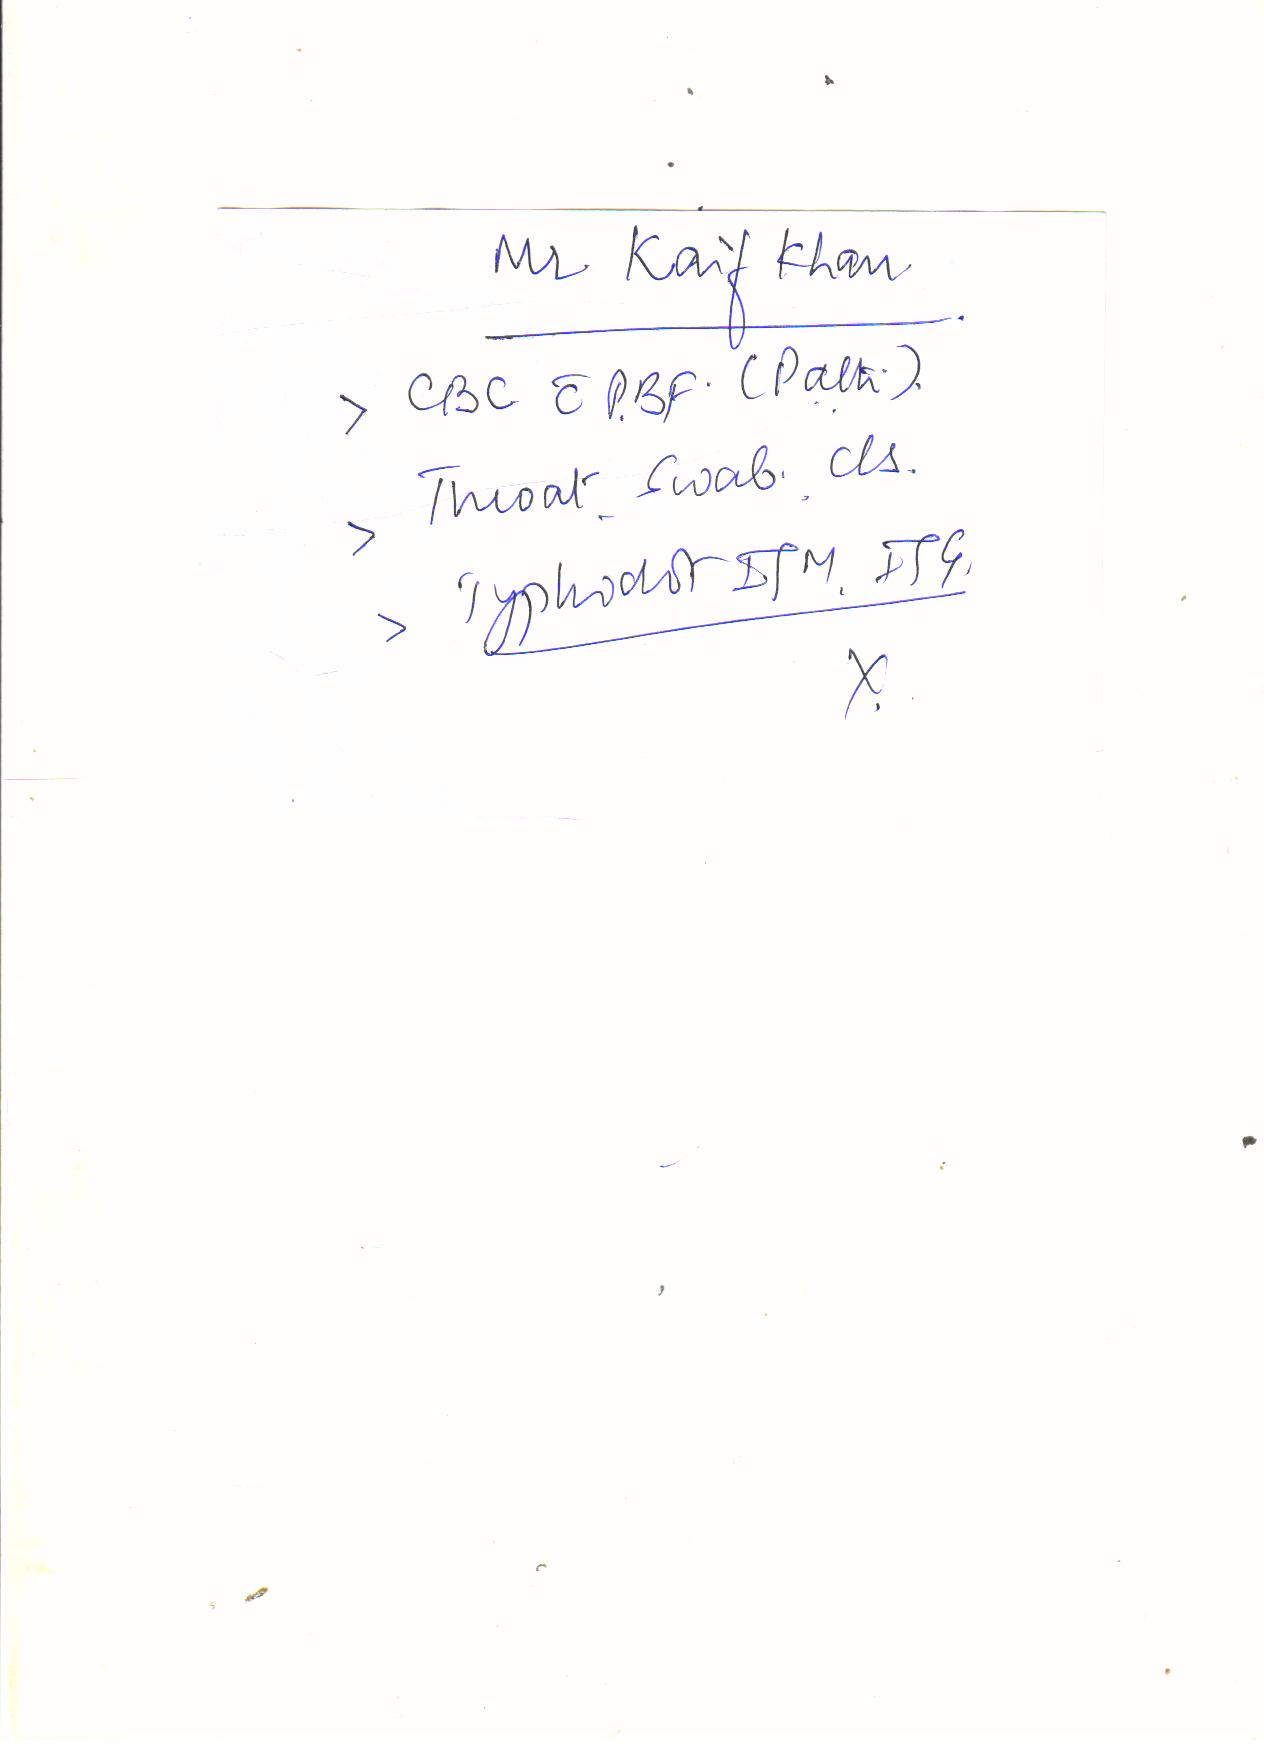 Mr. Kaif Khan
> CBC c̄ P.BF. (Path.).
> Throat Swab. c/s.
> Typhodot IgM, IgG.
X.